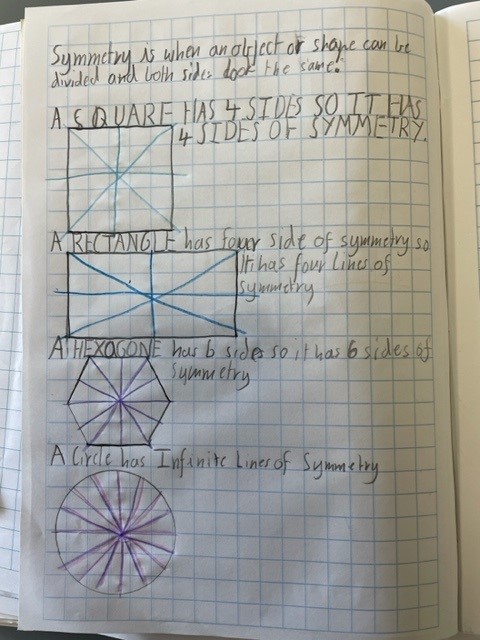 Symmetry is when an object or shape can be
divided and both sides look the same.
A SQUARE HAS 4 SIDES SO IT HAS
4 SIDES OF SYMMETRY.
A RECTANGLE has four side of symmetry so
It has four lines of
symmetry
A HEXAGONE has 6 sides so it has 6 sides of
symmetry
A Circle has Infinite Lines of Symmetry